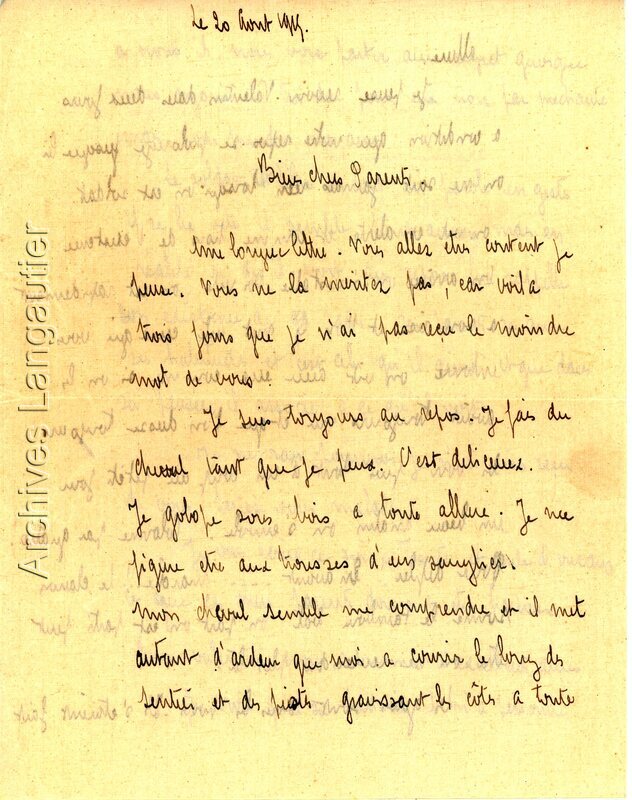 Le 20 Aout 1915.
Bien chers Parents
Une longue lettre. Vous allez etre content je
pense. Vous ne la meritez pas, car voila
trois jours que je n'ai pas reçu le moindre
mot de vous.
Je suis toujours au repos. Je fais du
cheval tant que je peux. C'est delicieux.
Je galope sous bois a toute allure. Je me
figure etre aux trousses d'un sanglier.
Mon cheval semble me comprendre et il met
autant d'ardeur que moi a courir le long des
sentiers et des pistes gravissant les côtes a toute
Archives Langautier